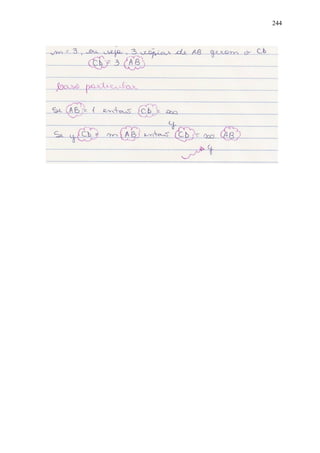 244
m = 3, ou seja, 3 cópias de AB geram o CD.
CD = 3 AB
Caso particular
Se AB = 1 então CD = m
y
Se y CD = m AB então CD = m AB
y